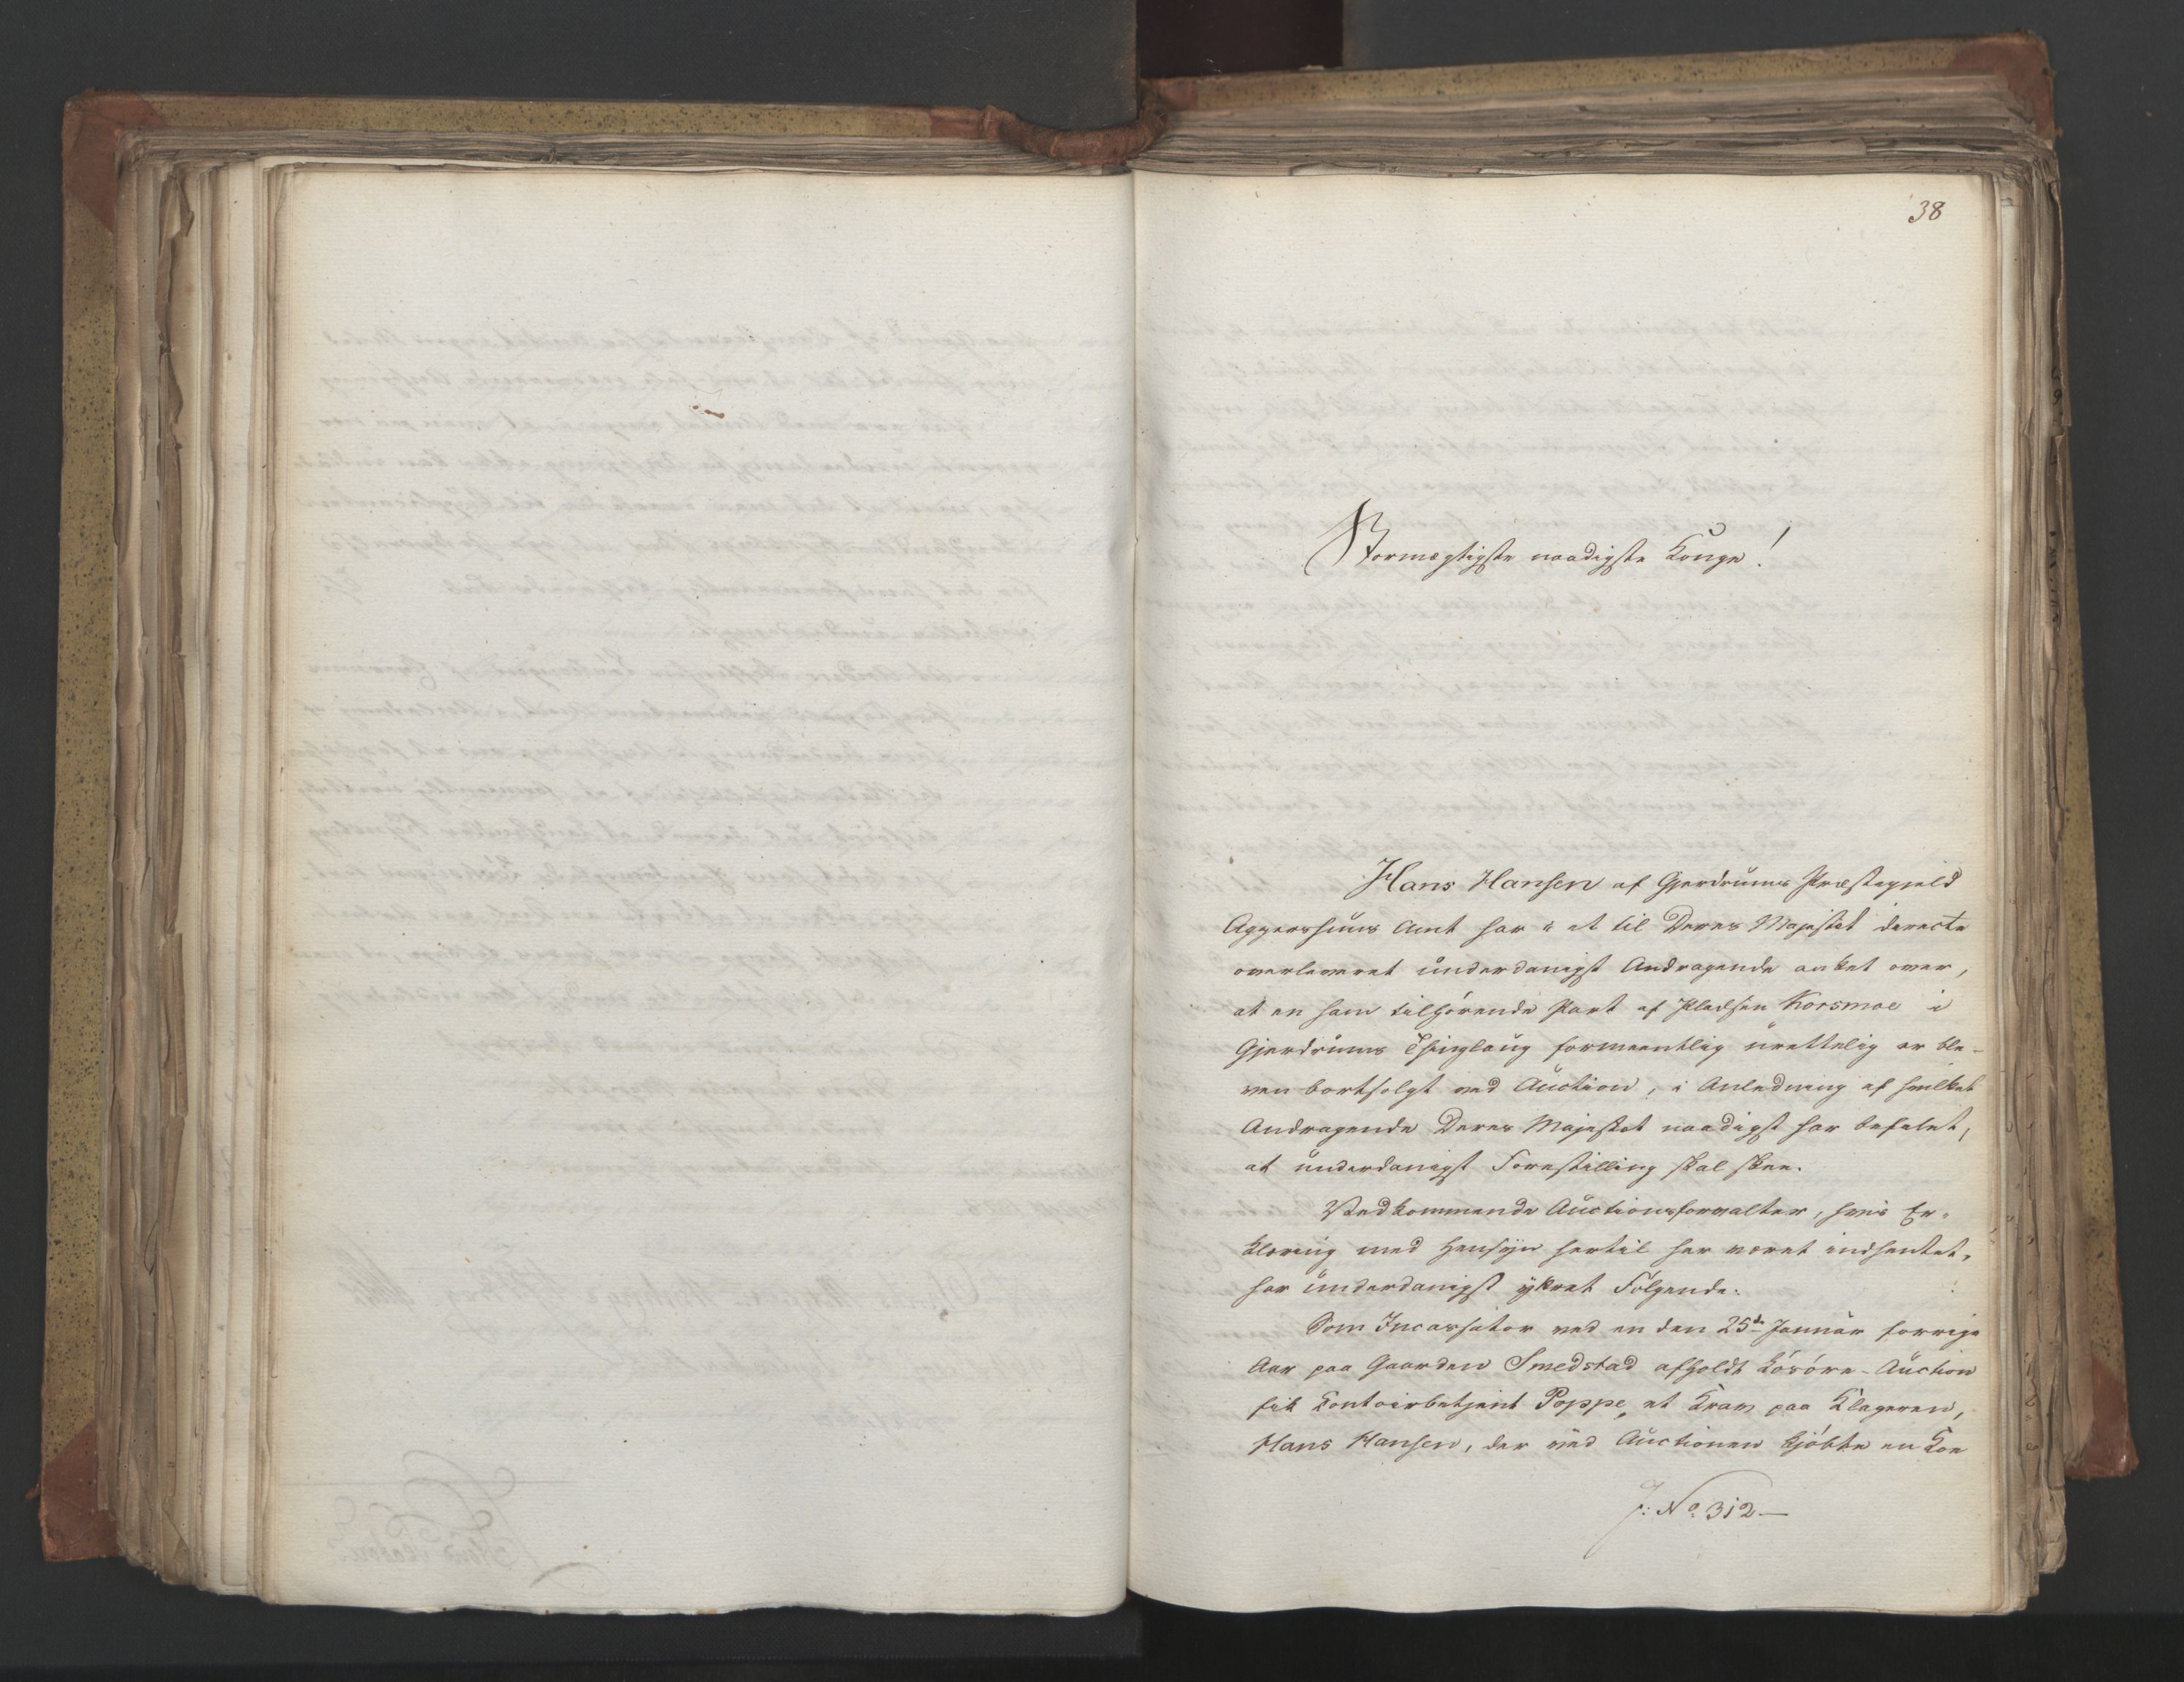 38
Stormægtigste naadigste Konge!
Hans Hansen af Gjerdrums Præstegjeld
Aggershuus Amt har i et til Deres Majestæt directe
overleveret underdanigst Andragende anket over,
at en ham tilhørende Part af Pladsen Korsmoe i
Gjerdrums Thinglaug formeentlig urettelig er ble-
ven bortsolgt ved Auction, i Anledning af hvilket
Andragende Deres Majestæt naadigst har befalet,
at underdanigst Forestilling skal skee.
Vedkommende Auctionsforvalter, hvis Er-
klæring med Hensyn hertil har været indhentet,
har underdanigst yttret Følgende:
Som Incassator ved en den 25de Januar forrige
Aar paa Gaarden Smedstad afholdt Løsøre-Auction
fik Contoirbetjent Poppe, et Krav paa Klageren,
Hans Hansen, der ved Auctionen kjøbte en Koe
J: No 312—